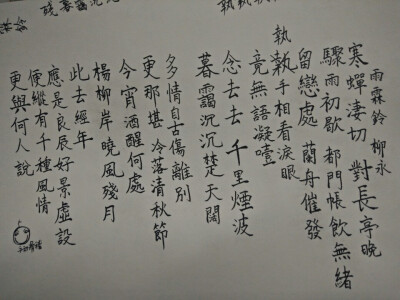 雨霖鈴 柳永
寒蟬淒切 對長亭晚
驟雨初歇 都門帳飲無緒
留戀處 蘭舟催發
執執手相看淚眼
竟無語凝噎
念去去 千里煙波
暮靄沉沉楚天闊
多情自古傷離別
更那堪 冷落清秋節
今宵酒醒何處
楊柳岸 曉風殘月
此去經年
應是良辰好景虛設
便縱有千種風情
更與何人說